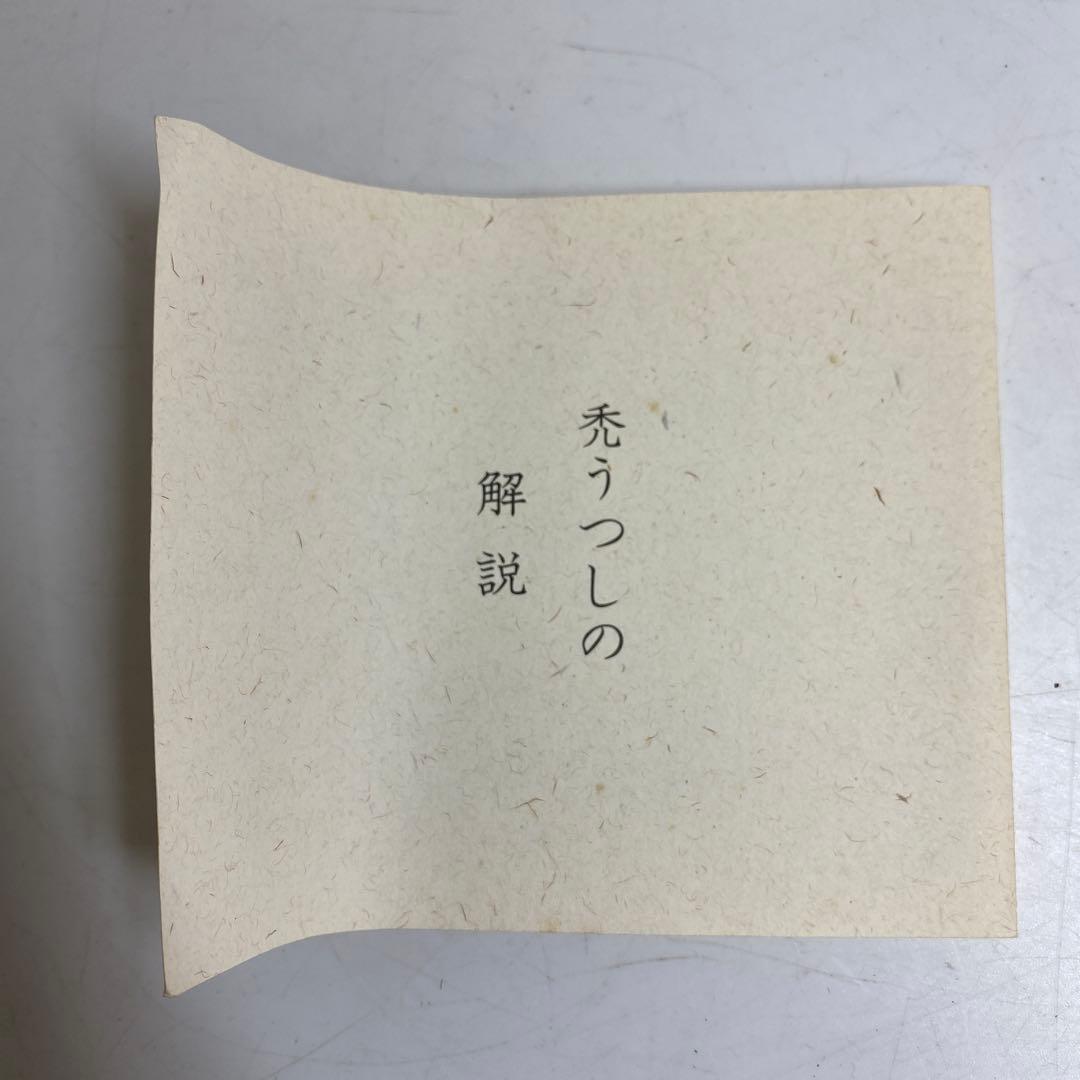 禿うつしの
解説